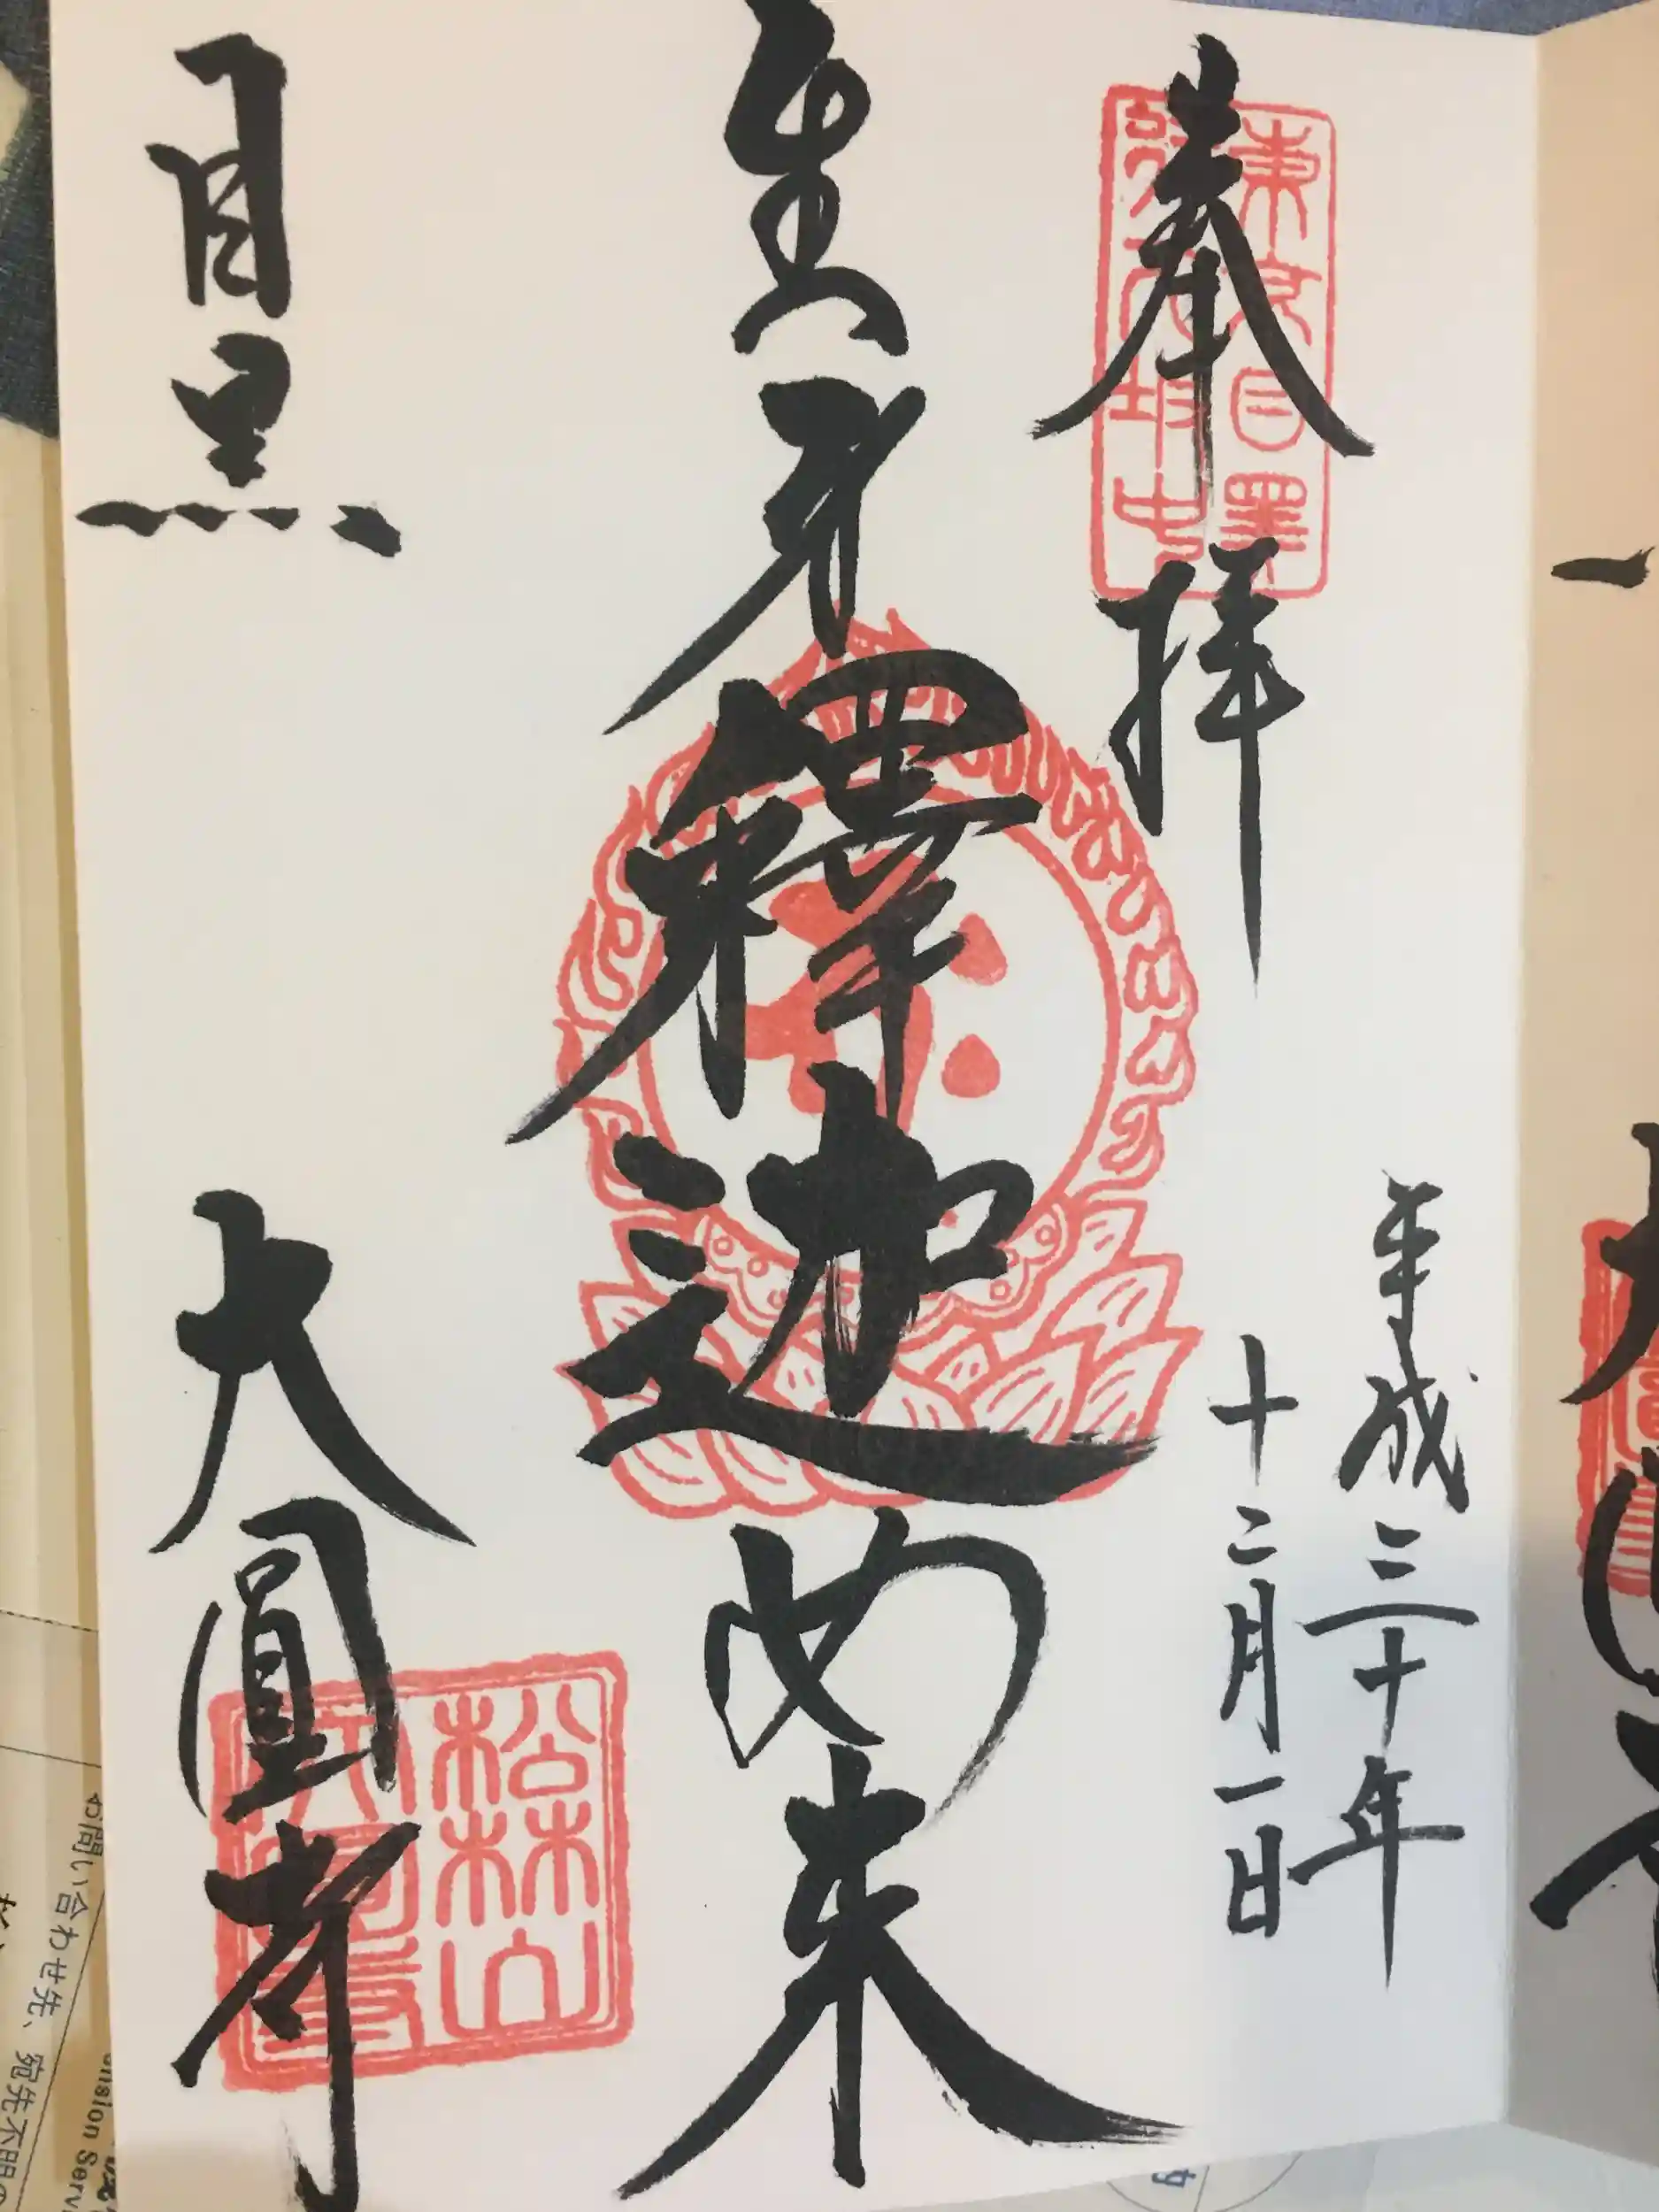 奉拝
東京目黒
行人坂中
平成三十年
十二月一日
生身釋迦如来
目黒
大圓寺
松林山
大圓寺
お問い合わせ先、宛先不明の